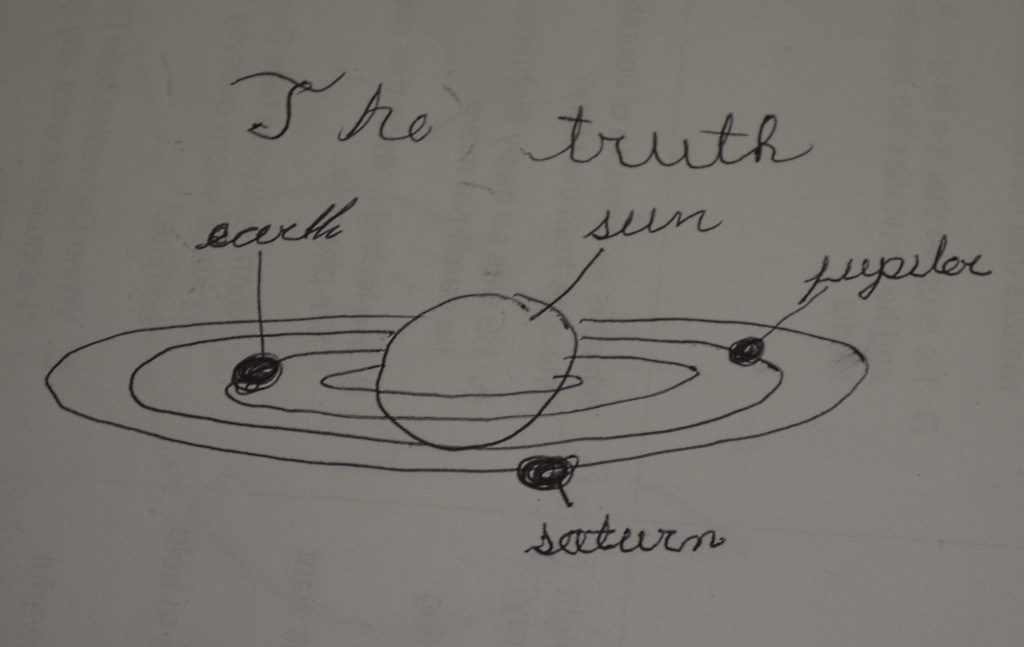 The truth
earth
sun
jupiler
saturn